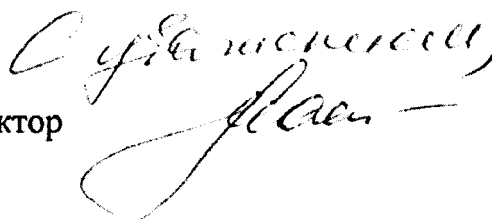 С уважением,
ктор